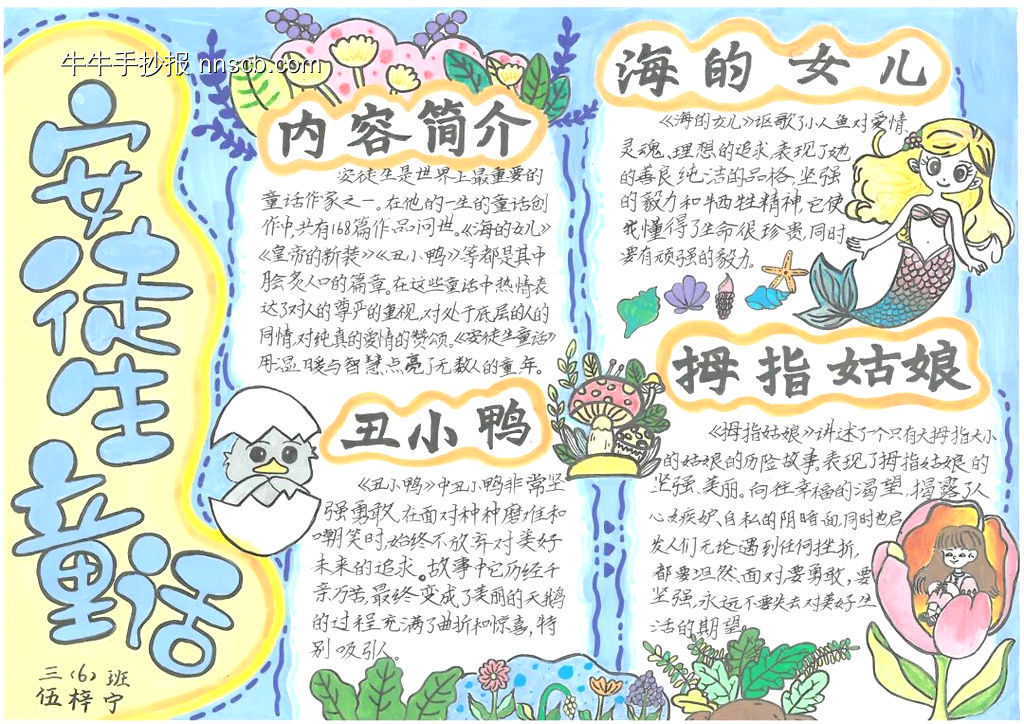 牛牛手抄报 nnscb.com
安徒生童话
三(6)班
伍梓宁
内容简介
安徒生是世界上最重要的
童话作家之一。在他的一生的童话创
作中,共有168篇作品问世。《海的女儿》
《皇帝的新装》《丑小鸭》等都是其中
脍炙人口的篇章。在这些童话中热情表
达了对人的尊严的重视,对处于底层的人的
同情,对纯真的爱情的赞颂。《安徒生童话》
用温暖与智慧点亮了无数人的童年。
丑小鸭
《丑小鸭》中丑小鸭非常坚
强勇敢,在面对种种磨难和
嘲笑时,始终不放弃对美好
未来的追求。故事中它历经千
辛万苦,最终变成了美丽的天鹅
的过程充满了曲折和惊喜,特
别吸引人。
海的女儿
《海的女儿》讴歌了小人鱼对爱情、
灵魂、理想的追求,表现了她
的善良纯洁的品格、坚强
的毅力和牺牲精神,它使
我懂得了生命很珍贵,同时
要有顽强的毅力。
拇指姑娘
《拇指姑娘》讲述了一个只有大拇指大小
的姑娘的历险故事,表现了拇指姑娘的
坚强、美丽。向往幸福的渴望,揭露了人
心嫉妒、自私的阴暗面,同时也启
发人们无论遇到任何挫折,
都要坦然、面对要勇敢,要
坚强,永远不要失去对美好生
活的期望。